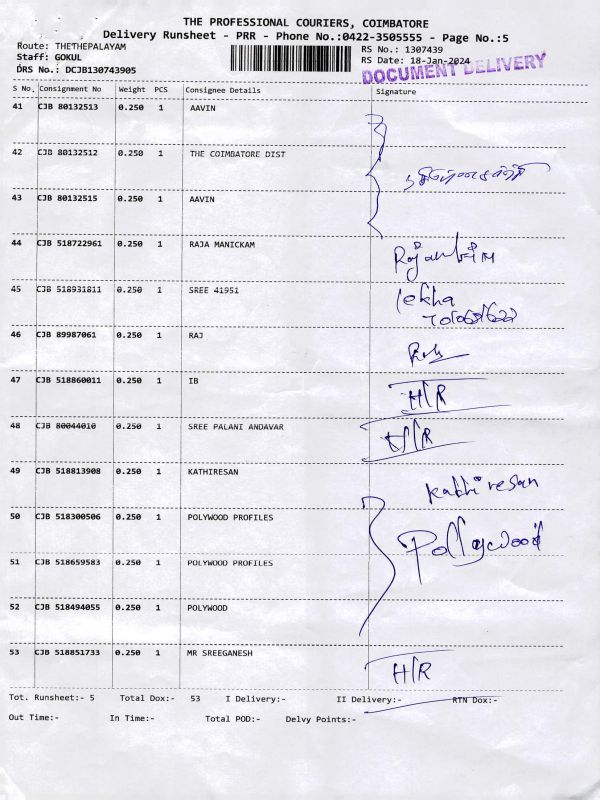 THE PROFESSIONAL COURIERS, COIMBATORE
Delivery Runsheet - PRR - Phone No.:0422-3505555 - Page No.:5
Route: THETHEPALAYAM
Staff: GOKUL
DRS No.: DCJB130743905
RS No.: 1307439
RS Date: 18-Jan-2024
DOCUMENT DELIVERY
S No. Consignment No Weight PCS Consignee Details Signature
41 CJB 80132513 0.250 1 AAVIN
42 CJB 80132512 0.250 1 THE COIMBATORE DIST
43 CJB 80132515 0.250 1 AAVIN
44 CJB 518722961 0.250 1 RAJA MANICKAM
45 CJB 518931811 0.250 1 SREE 41951 lekha
46 CJB 89987061 0.250 1 RAJ
47 CJB 518860011 0.250 1 IB H/R
48 CJB 80044010 0.250 1 SREE PALANI ANDAVAR H/R
49 CJB 518813908 0.250 1 KATHIRESAN Kathiresan
50 CJB 518300506 0.250 1 POLYWOOD PROFILES Pollywood
51 CJB 518659583 0.250 1 POLYWOOD PROFILES
52 CJB 518494055 0.250 1 POLYWOOD
53 CJB 518851733 0.250 1 MR SREEGANESH H/R
Tot. Runsheet:- 5 Total Dox:- 53 I Delivery:- II Delivery:- RTN Dox:-
Out Time:- In Time:- Total POD:- Delvy Points:-